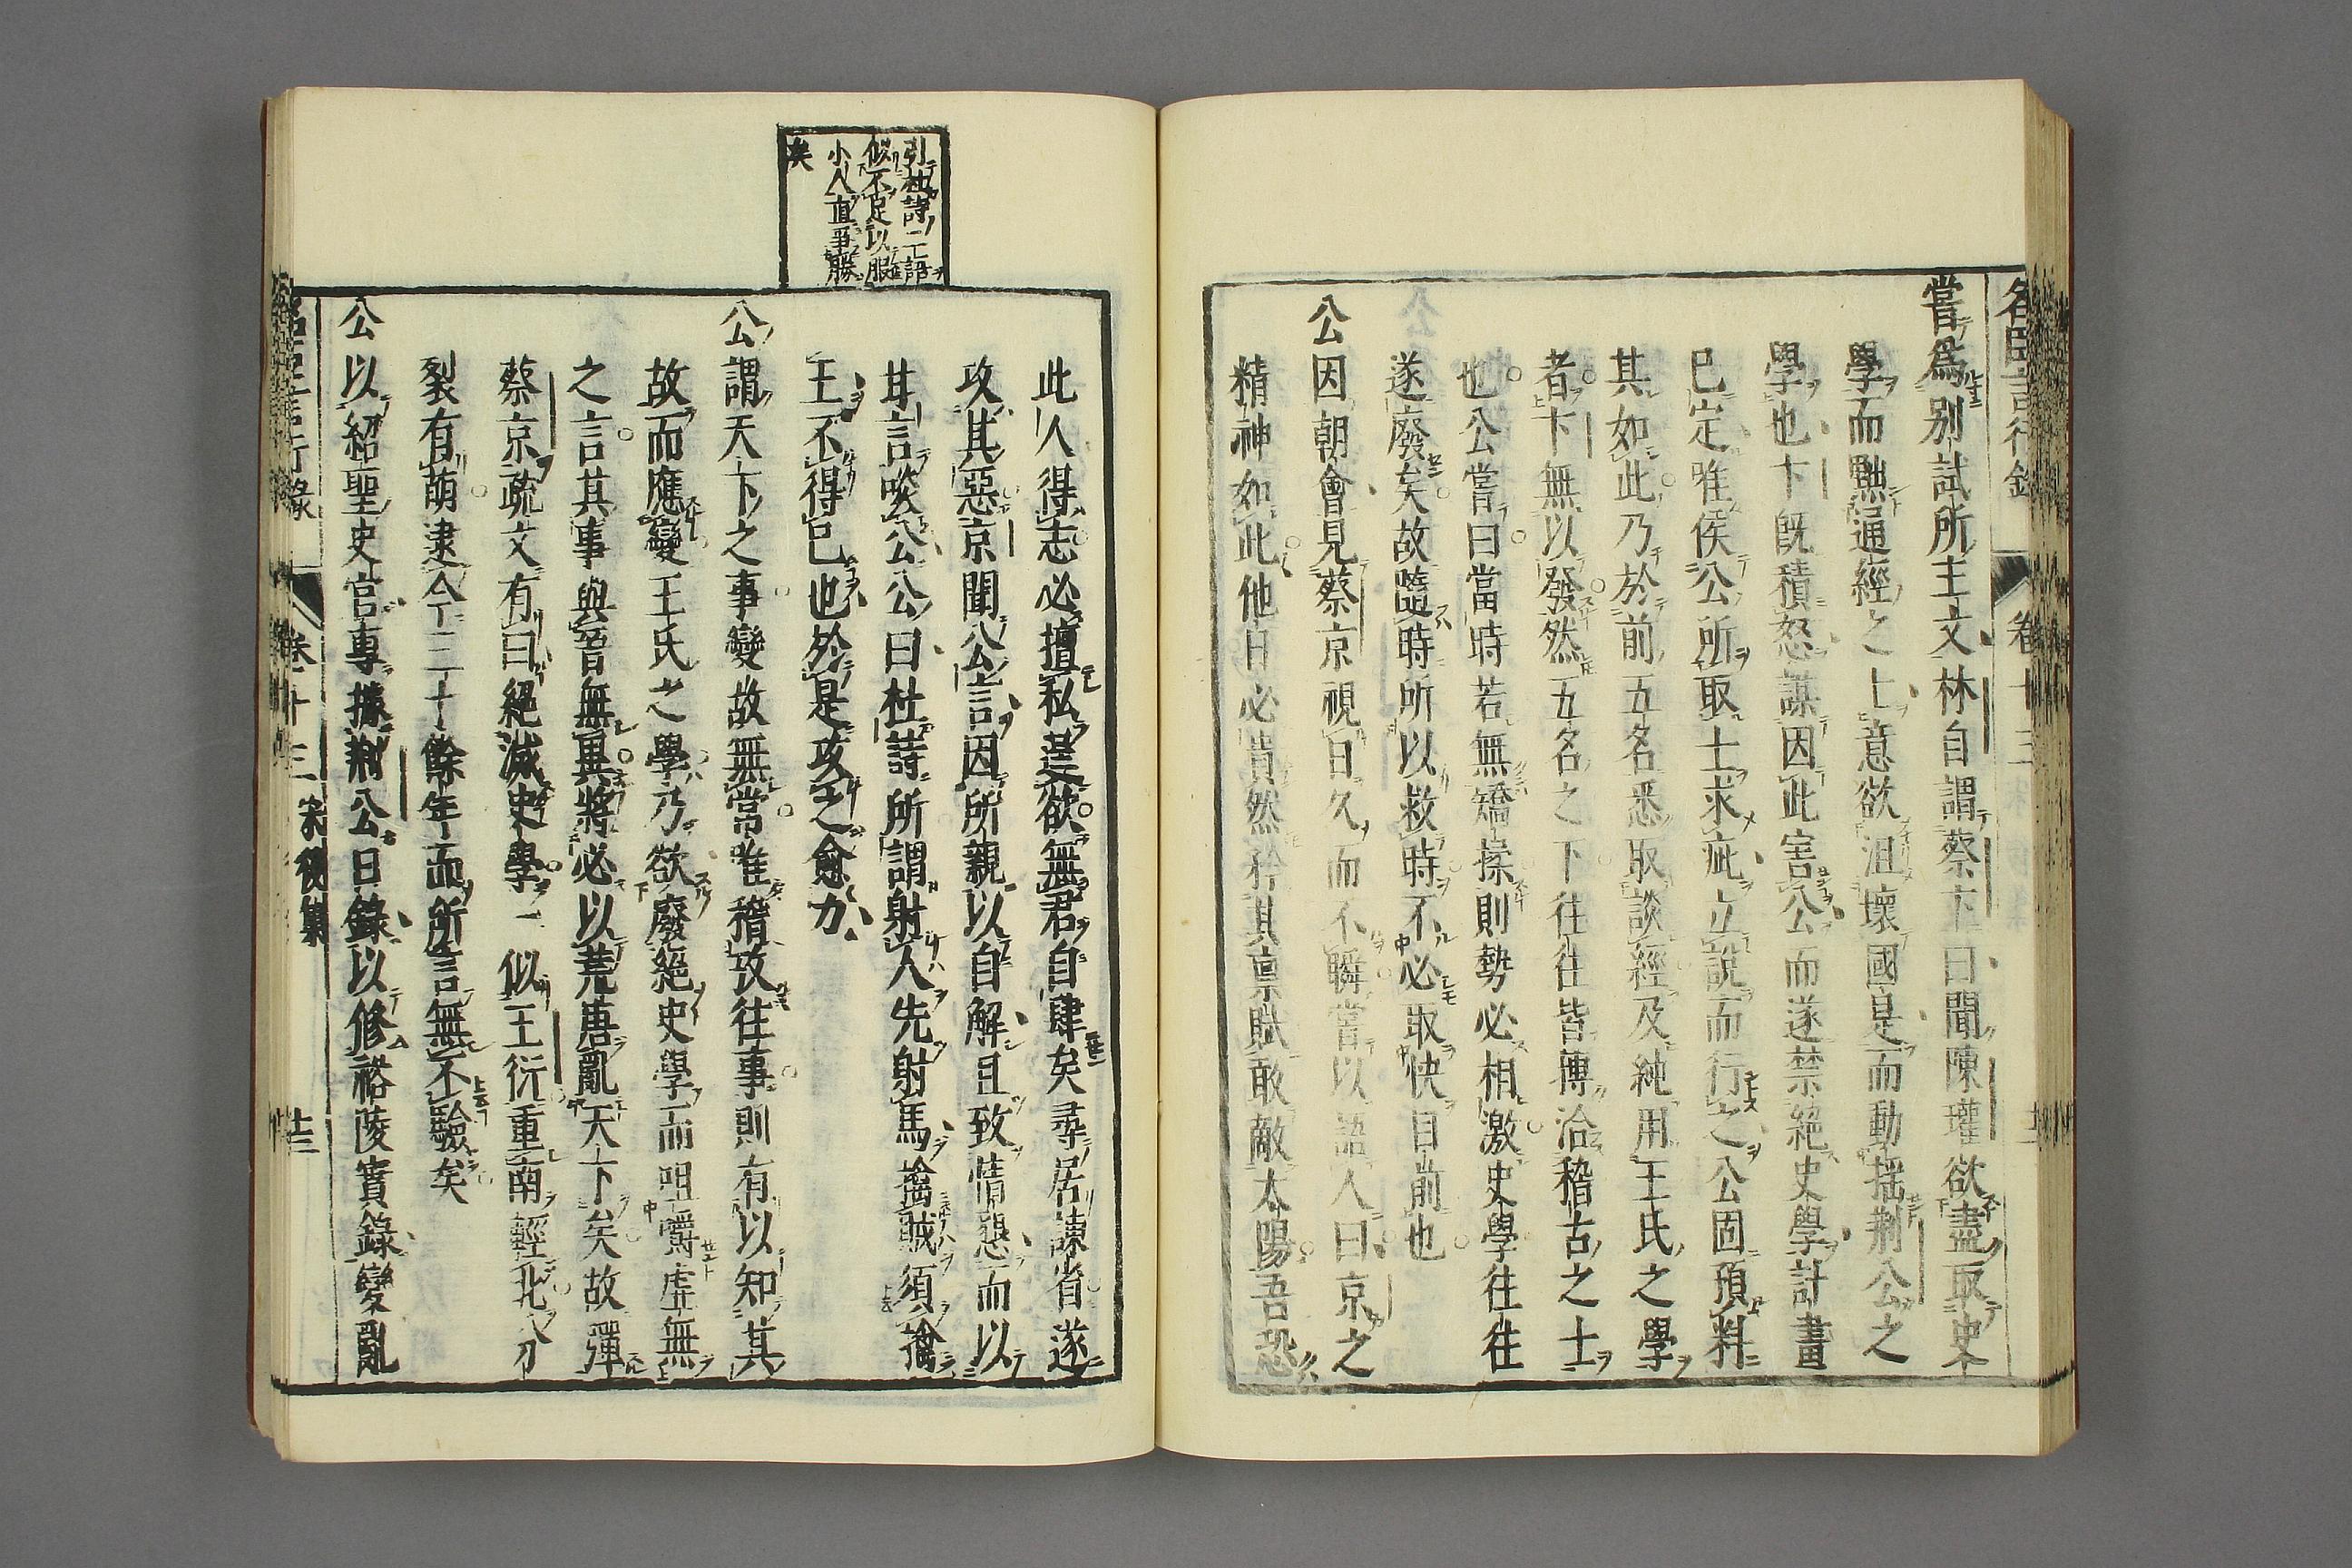 名臣言行錄 卷十三
嘗爲別試所主文林自謂蔡卞曰聞陳瓘欲盡取史
學而黜通經之士意欲沮壞國是而動揺荆公之
學也卞旣積怒謀因此害公而遂禁絕史學計畫
已定唯候公所取士求疵立說而行之公固預料
其如此乃於前五名悉取談經及純用王氏之學
者卞無以發然五名之下往往皆傳洽稽古之士
也公嘗曰當時若無矯揉則勢必相激史學往往
遂廢矣故隨時所以救時不必取快目前也
公因朝會見蔡京視日久而不瞬嘗以語人曰京之
精神如此他日必貴然矜其禀賦敢敵太陽吾恐
引杜詩二語
似不足以服
小人直爭勝
矣
此人得志必擅私逞欲無君自肆矣尋居諫省遂
攻其惡京聞公言因所親以自解且致情懇而以
甘言啖公公曰杜詩所謂射人先射馬擒賊須擒
王不得已也於是攻之愈力
公謂天下之事變故無常唯稽攷往事則有以知其
故而應變王氏之學乃欲廢絕史學而咀嚼虛無
之言其事與晉無異將必以荒唐亂天下矣故彈
蔡京疏文有曰絕滅史學一似王衍重南輕北分
裂有萌逮今三十餘年而所言無不驗矣
公以紹聖史官專據荆公日錄以修裕陵實錄變亂
名臣言行錄 卷十三 宋後集 廿三